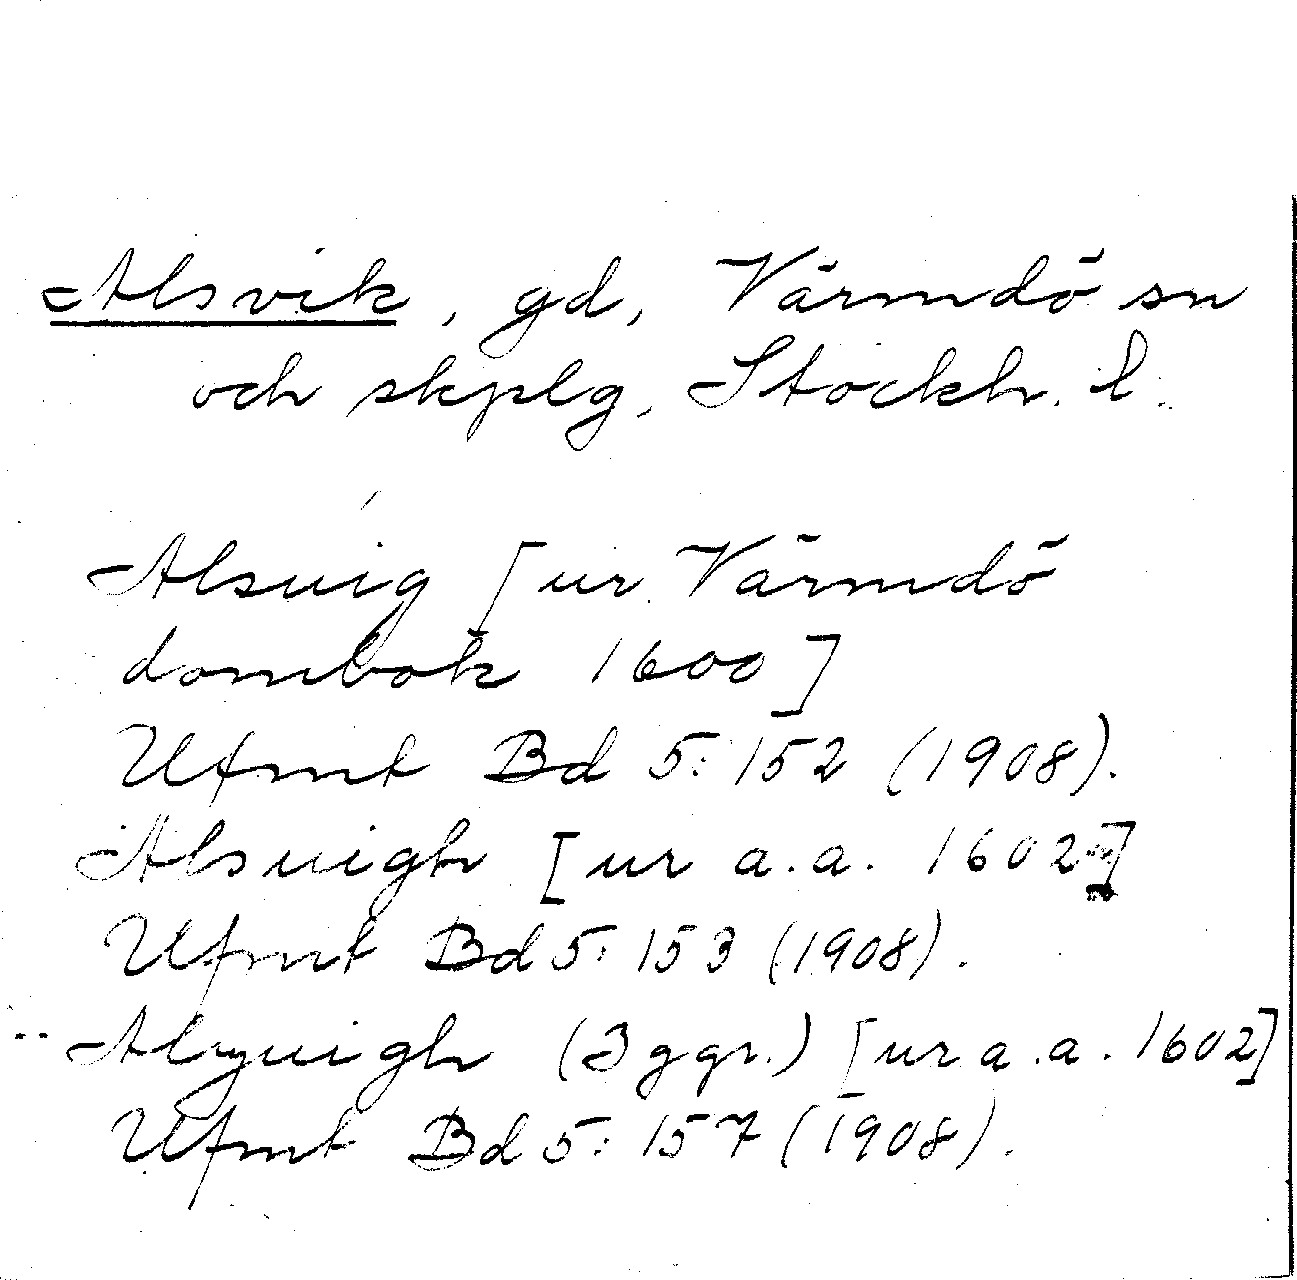 Alsvik, gd, Värmdö sn
och skplg, Stockh. l.
Alsuig [ur Värmdö
dombok 1600]
Ufmt Bd 5: 152 (1908).
Alsuigh [ur a.a. 1602]
Ufmt Bd 5: 153 (1908).
(3 ggr.) [ur a.a. 1602]
Ufmt Bd 5: 157 (1908).